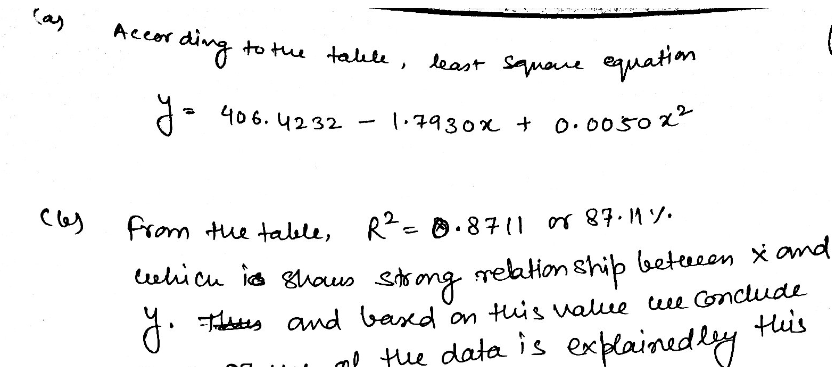 (a)
According to the table, least square equation
y = 406.4232 - 1.7930x + 0.0050x²
(b) from the table, R² = 0.8711 or 87.11%.
which is shows strong relationship between x and
y. Thus and based on this value we conclude
of the data is explained by this